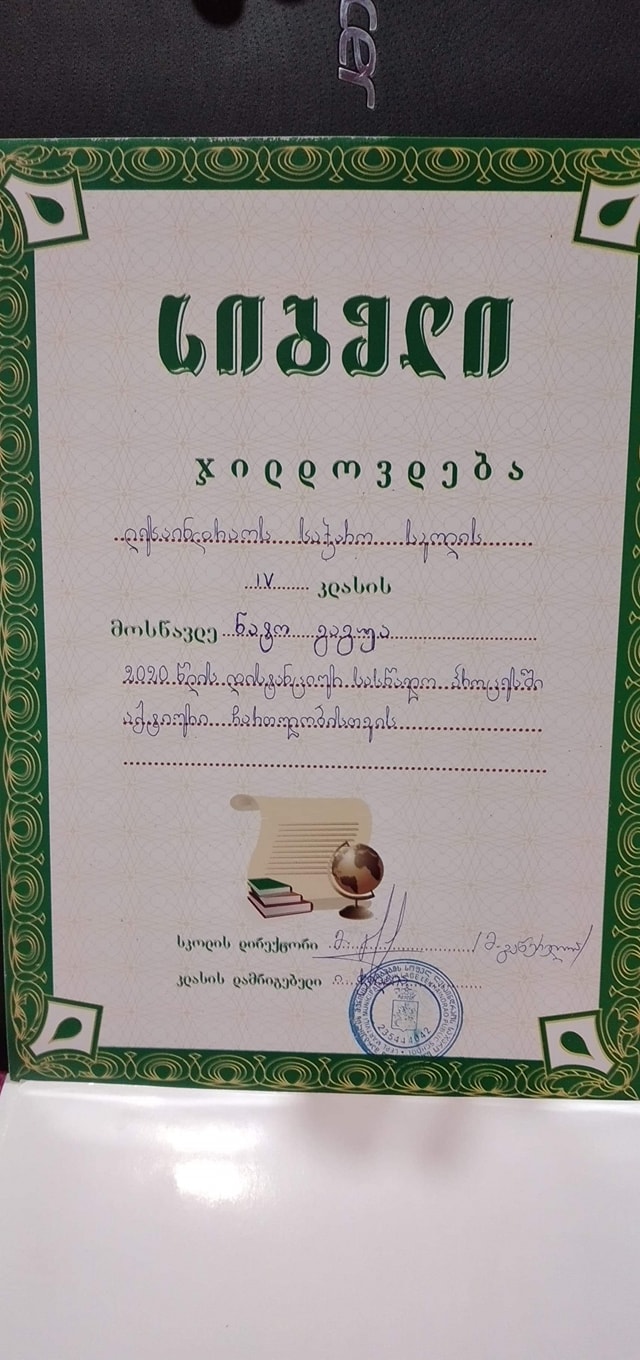 acer
სიგელი
ჯილდოვდება
ლეხაინდრაოს საჯარო სკოლის
IV კლასის
მოსწავლე ნატო გაგუა
2020 წლის დისტანციურ სასწავლო პროცესში
აქტიური ჩართულობისთვის
სკოლის დირექტორი მ.
კლასის დამრიგებელი ი.
235444042